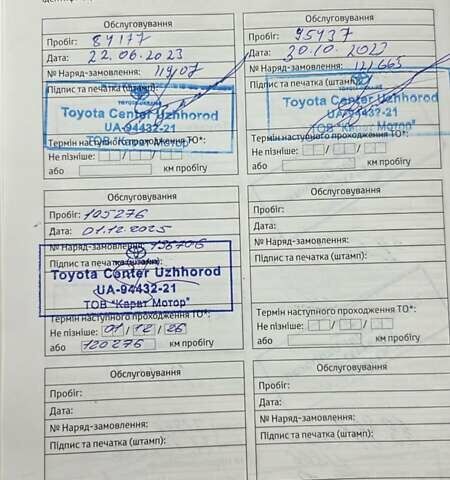 Обслуговування
Пробіг: 84177
Дата: 22.06.2023
№ Наряд-замовлення: 119107
Підпис та печатка (штамп):
TOYOTA
Toyota Center Uzhhorod
UA-94432-21
ТОВ "Карат Мотор"
Термін наступного проходження ТО*:
Не пізніше: / /
або км пробігу
Обслуговування
Пробіг: 95937
Дата: 30.10.2023
№ Наряд-замовлення: 121665
Підпис та печатка (штамп):
Toyota Center Uzhhorod
UA-94432-21
ТОВ "Карат Мотор"
Термін наступного проходження ТО*:
Не пізніше: / /
або км пробігу
Обслуговування
Пробіг: 105276
Дата: 01.12.2025
№ Наряд-замовлення: 136706
Підпис та печатка (штамп):
Toyota Center Uzhhorod
UA-94432-21
ТОВ "Карат Мотор"
Термін наступного проходження ТО*:
Не пізніше: 01 / 12 / 26
або 120276 км пробігу
Обслуговування
Пробіг:
Дата:
№ Наряд-замовлення:
Підпис та печатка (штамп):
Термін наступного проходження ТО*:
Не пізніше: / /
або км пробігу
Обслуговування
Пробіг:
Дата:
№ Наряд-замовлення:
Підпис та печатка (штамп):
Обслуговування
Пробіг:
Дата:
№ Наряд-замовлення:
Підпис та печатка (штамп):